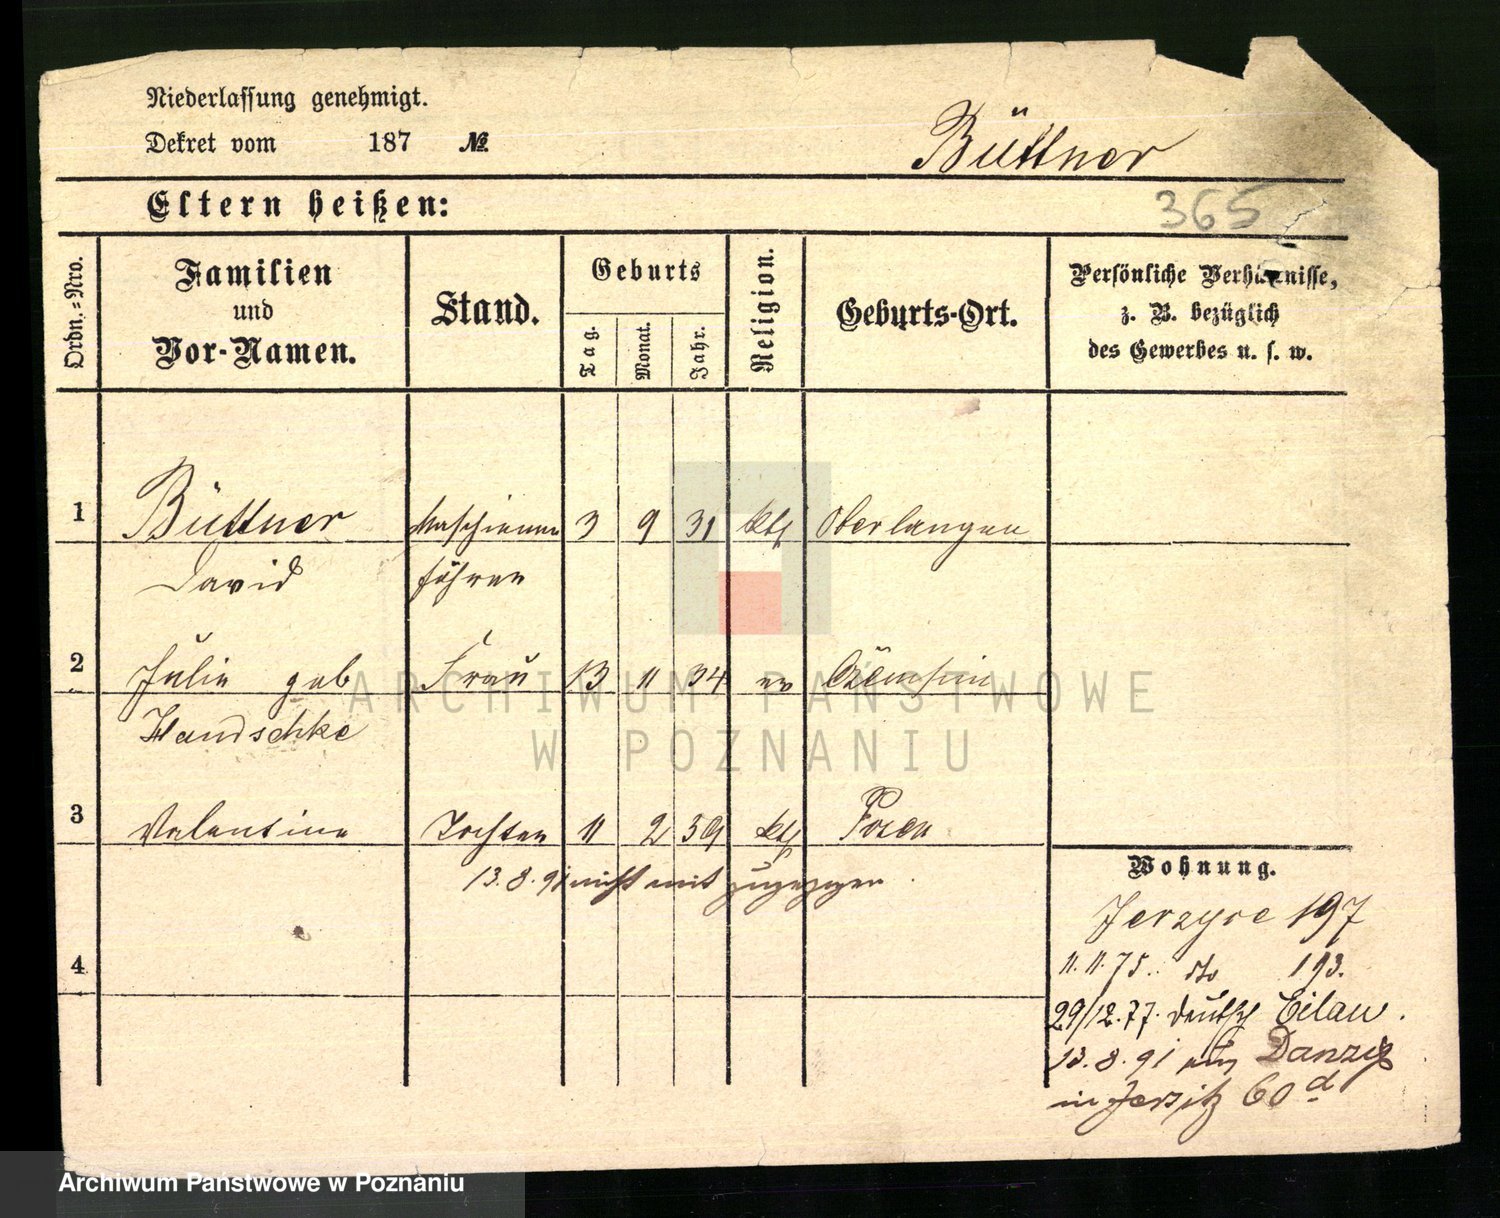 Niederlassung genehmigt.
Dekret vom 187 №.
Büttner
Eltern heißen:
365
Ordn.-Nro.
Familien
und
Vor-Namen.
Stand.
Geburts
Tag.
Monat.
Jahr.
Religion.
Geburts-Ort.
Persönliche Verhältnisse,
z. B. bezüglich
des Gewerbes u. s. w.
1 Büttner Maschienen 3 9 31 kth Oberlangen
David führer
2 Julie geb Frau 13 11 34 ev
Handschke
3 Valentine Tochter 11 2 59 kth Posen
13.8.91 nicht mit zugezogen.
4
Wohnung.
Jerzyce 197
11.11.75. dto 193.
29/12.77. deutsch Eilau.
13.8.91 aus Danzig
in Jersitz 60 d
ARCHIWUM PAŃSTWOWE
W POZNANIU
Archiwum Państwowe w Poznaniu